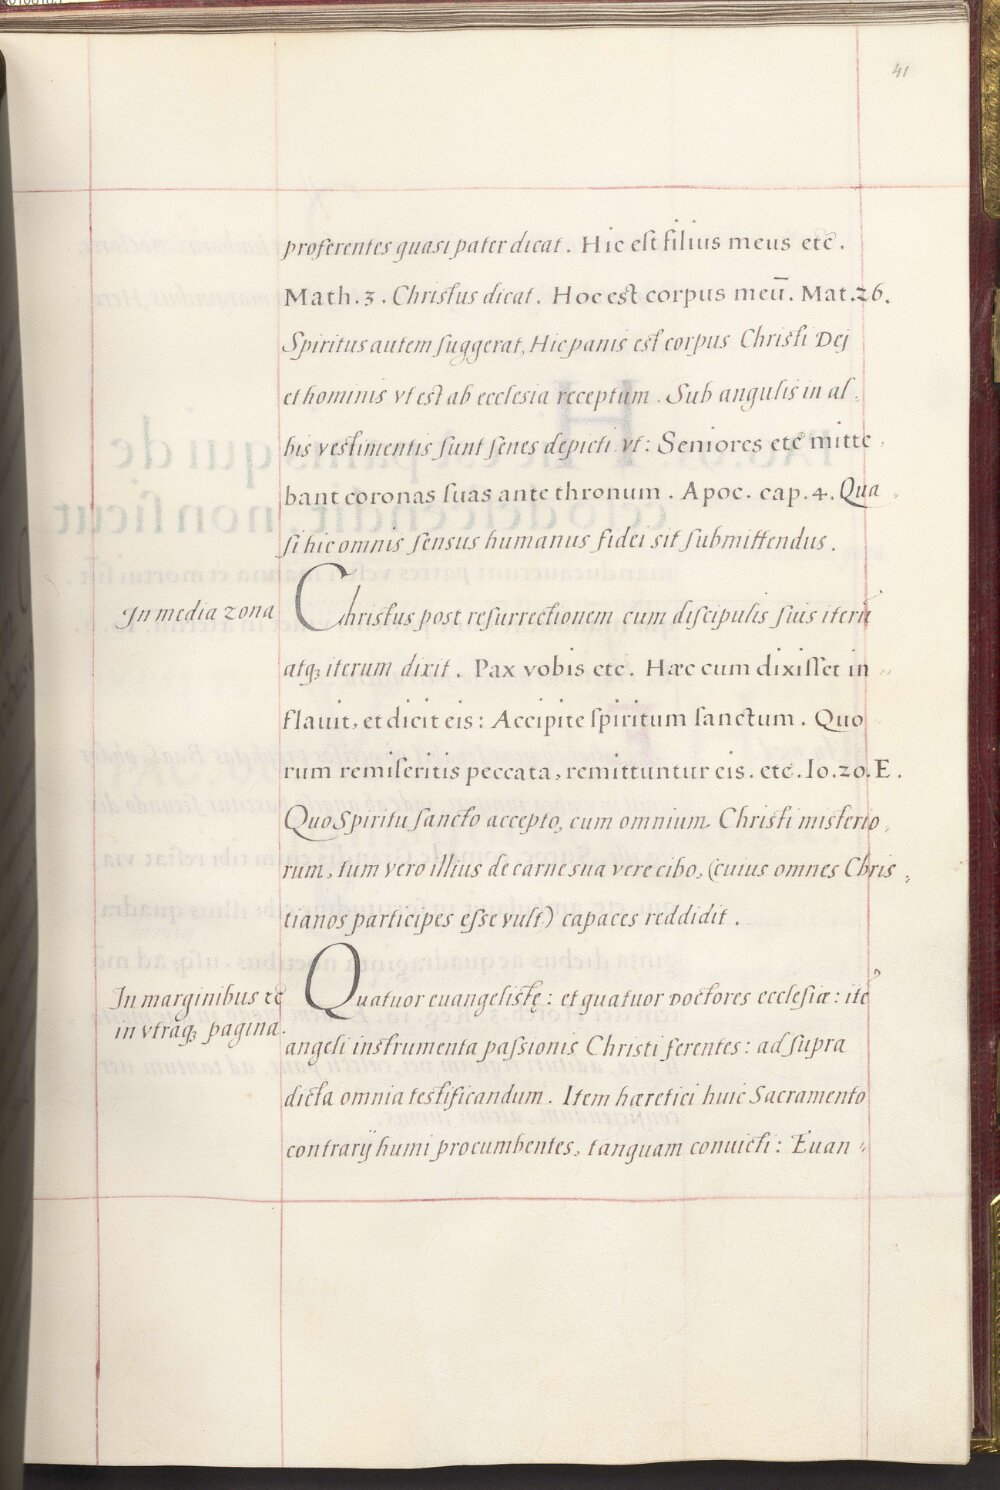 41
proferentes quasi pater dicat. Hic eſt filius meus etc.
Math.3. Christus dicat. Hoc est corpus meū. Mat.26.
Spiritus autem ſuggerat, Hic panis est corpus Christi Dej
et hominis vt est ab ecclesia receptum. Sub angulis in al,
bis vestimentis ſunt ſenes depicti vt: Seniores etc mitte,
bant coronas ſuas ante thronum. Apoc. cap.4. Qua,,
ſi hic omnis ſensus humanus fidei sit ſubmittendus.
In media zona
Christus post reſurrectionem cum diſcipulis ſuis iterū
atqꝫ iterum dixit. Pax vobis etc. Hæc cum dixiſſet in,,
flauit, et dicit eis: Accipite ſpiritum ſanctum. Quo
rum remiſeritis peccata, remittuntur eis. etc. Io.20.E.
Quo Spiritu ſancto accepto, cum omnium Christi misterio,
rum, tum vero illius de carne sua vere cibo, (cuius omnes Chris,,
tianos participes eſſe vult) capaces reddidit.
In marginibus etc
in vtraqꝫ pagina.
Quatuor euangelistę: et quatuor Doctores ecclesiæ: itē
angeli instrumenta paſsionis Christi ferentes: ad ſupra
dicta omnia testificandum. Item hæretici huic Sacramento
contrarÿ humi procumbentes, tanquam conuicti: Euan,,